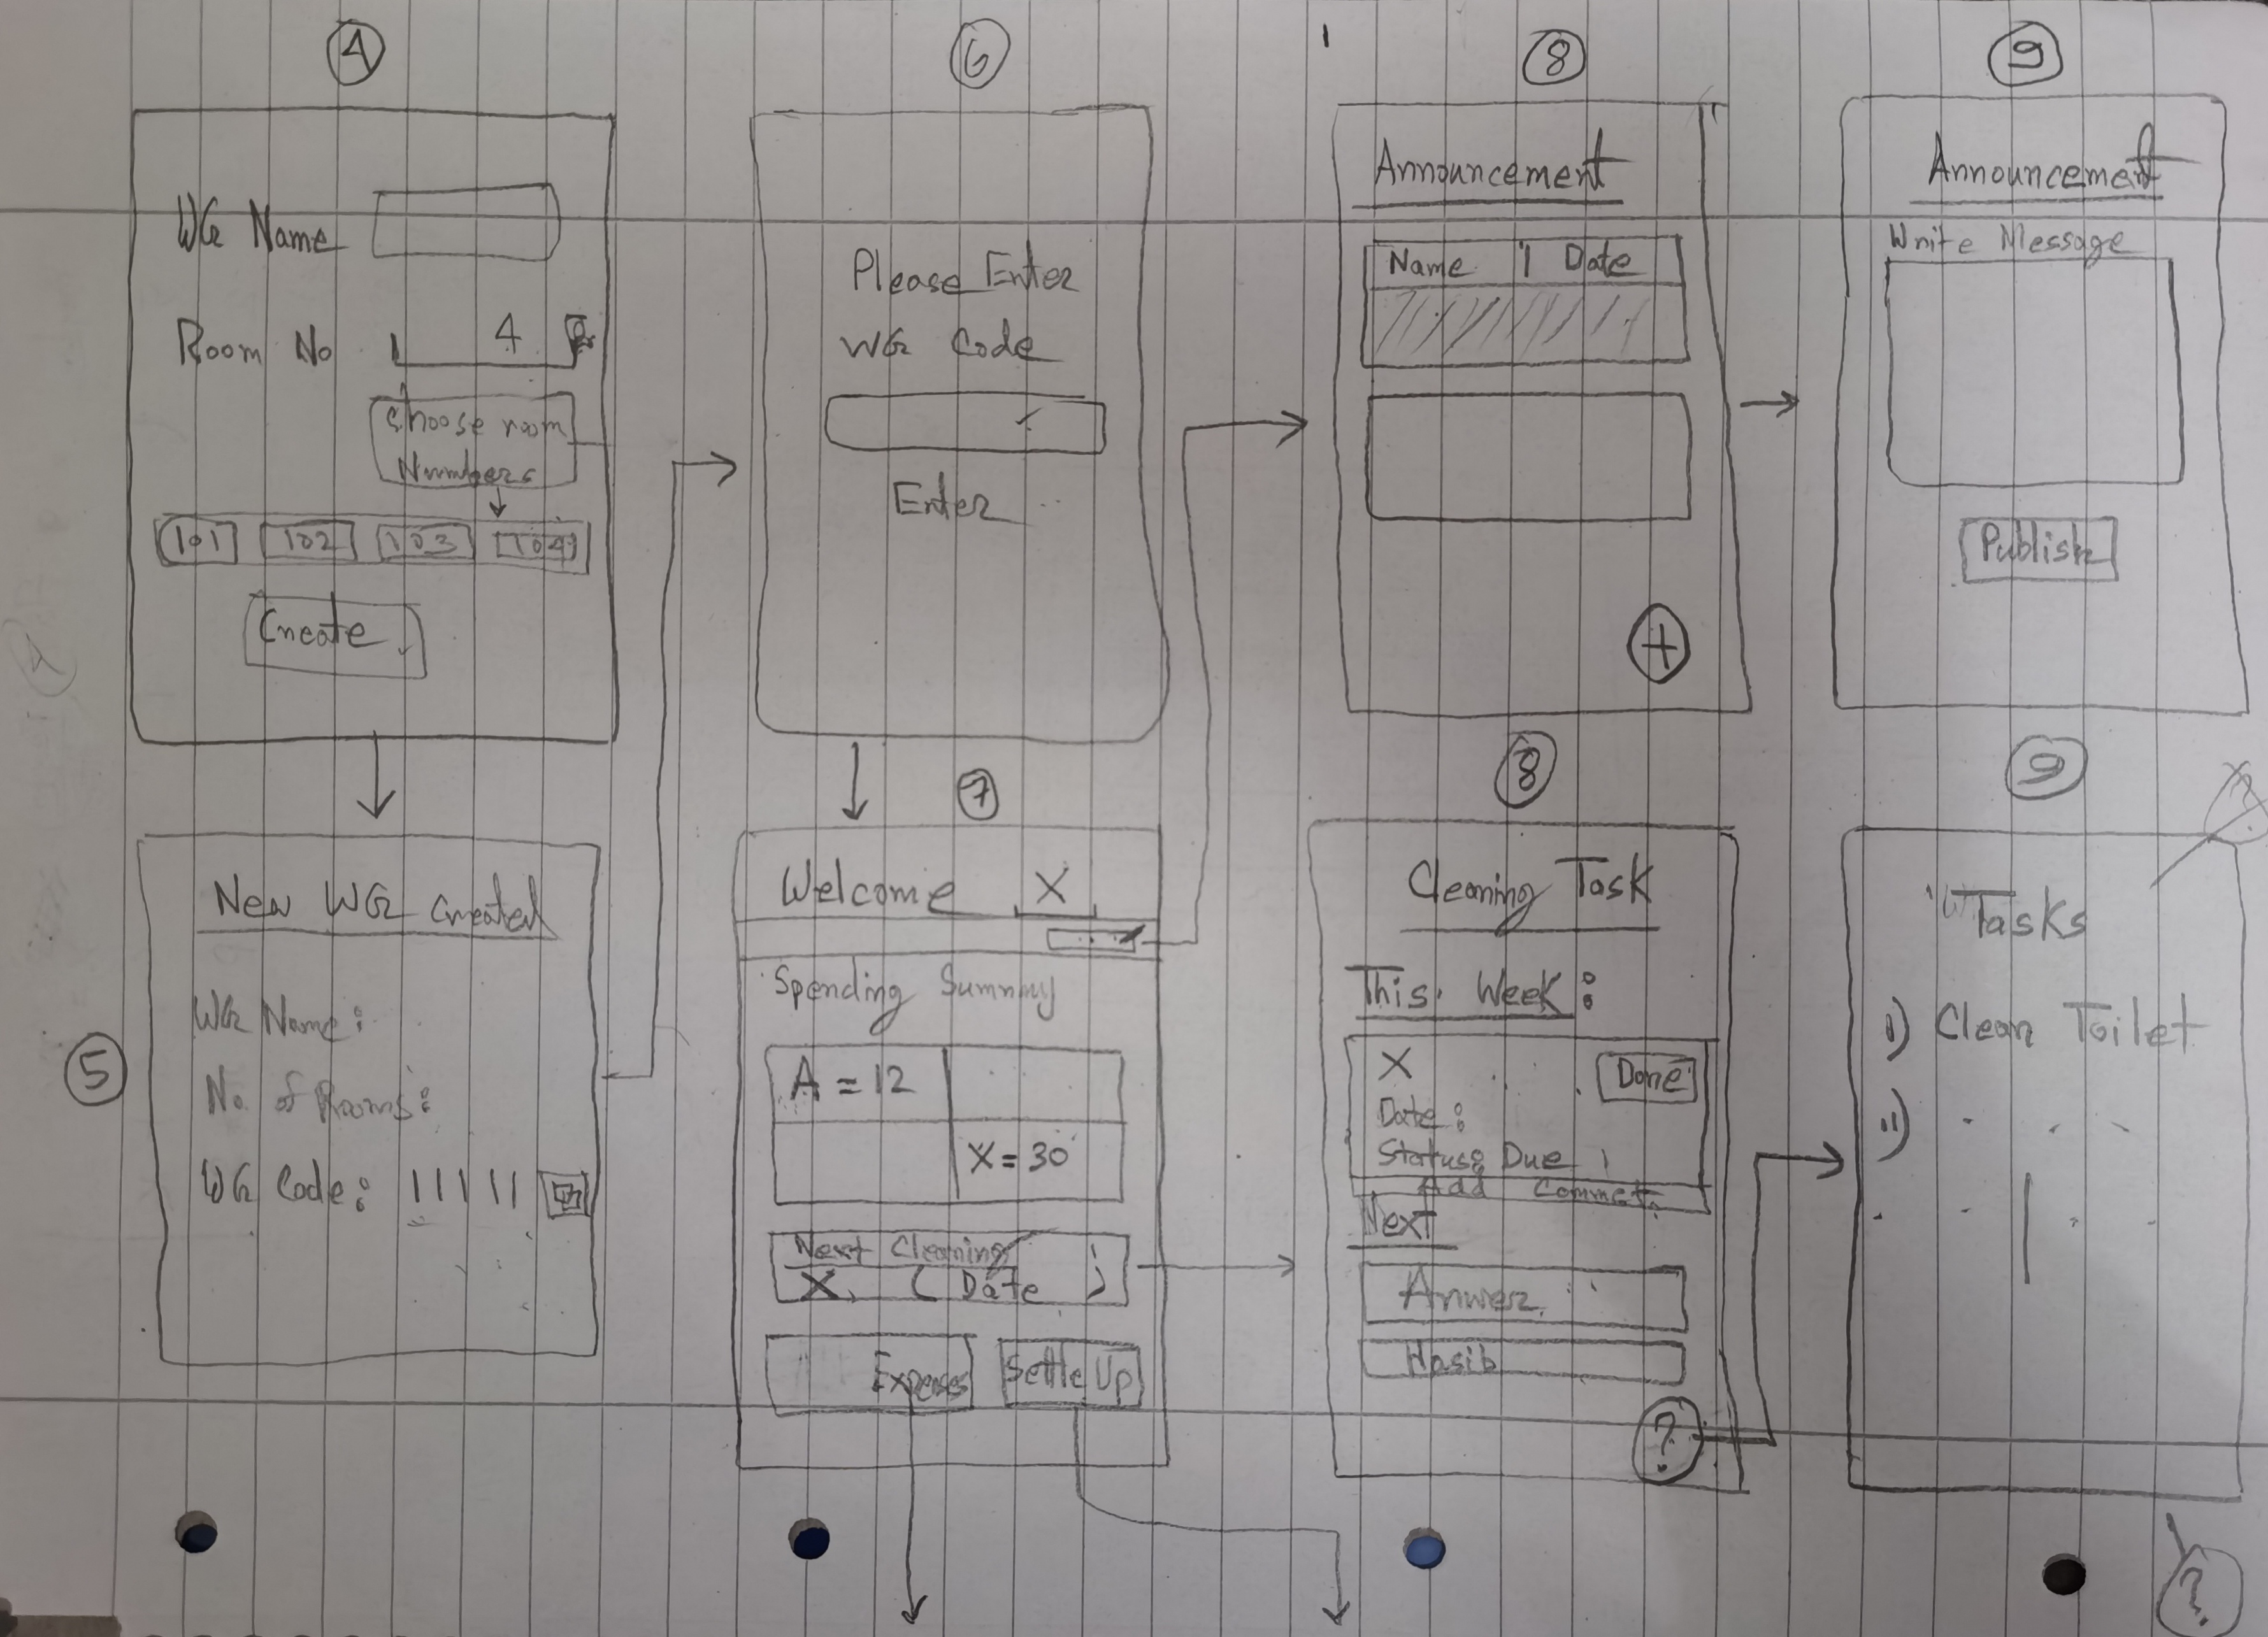 4
WG Name
Room No 4
Choose room
Numbers
101 102 103 104
Create
5
New WG Created
WG Name:
No. of Rooms:
WG Code: 11111
6
Please Enter
WG Code
Enter
7
Welcome X
...
Spending Summry
A = 12
X = 30
Next Cleaning
X. ( Date )
Expenses Settle Up
8
Announcement
Name | Date
+
8
Cleaning Task
This Week:
X Done
Date:
Status: Due
Add Commet
Next
Anwer
Hasib
?
9
Announcement
Write Message
Publish
9
Tasks
i) Clean Toilet
ii)
?